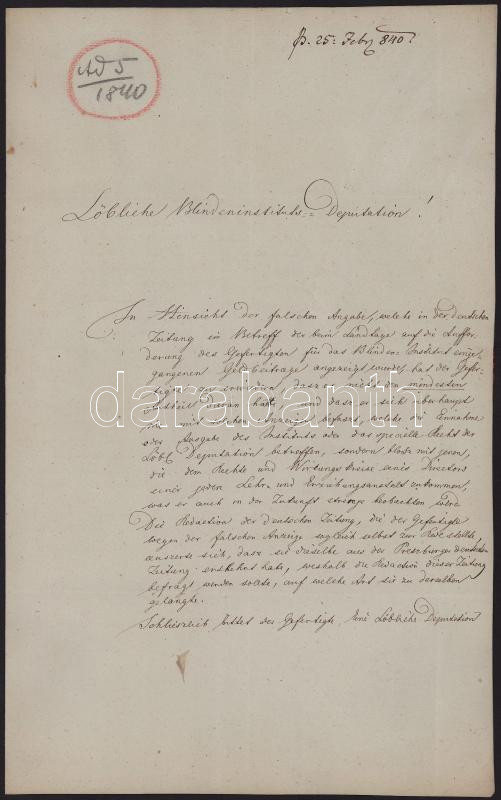 p. 25: Febr 840.
Ad 5
1840
Löbliche Blindeninstituts= Deputation!
In Hinsicht der falschen Angabe, welche in der deutschen
Zeitung in Betreff der beim Landtage auf die Auffor-
derung des Gefertigten für das Blinden-Institut einge-
gangenen Geldbeitrage angezeigt wurde, hat der Gefer-
tigte zu erwidern, dass er nicht den mindesten
Antheil daran hatte und dass er sich überhaupt
nie mit solchen Anzeigen befasst, welche die Einnahme
oder Ausgabe des Instituts oder das specielle Recht der
Löbl Deputation betreffen, sondern bloss mit jenen,
die dem Rechte und Wirkungskreise eines Directors
einer jeden Lehr- und Erziehungsanstalt entkommen,
was er auch in der Zukunft strenge beobachten wird
Die Redaction der deutschen Zeitung, die der Gefertigte
wegen der falschen Anzeige sogleich selbst zur Rede stellte,
äusserte sich, dass sie dieselbe aus der Pressburger deutschen
Zeitung entlehnt habe, weshalb die Redaction dieser Zeitung
befragt werden sollte, auf welche Art sie zu derselben
gelangte.
Schliesslich bittet der Gefertigte, Eine Löbliche Deputation
darabanth